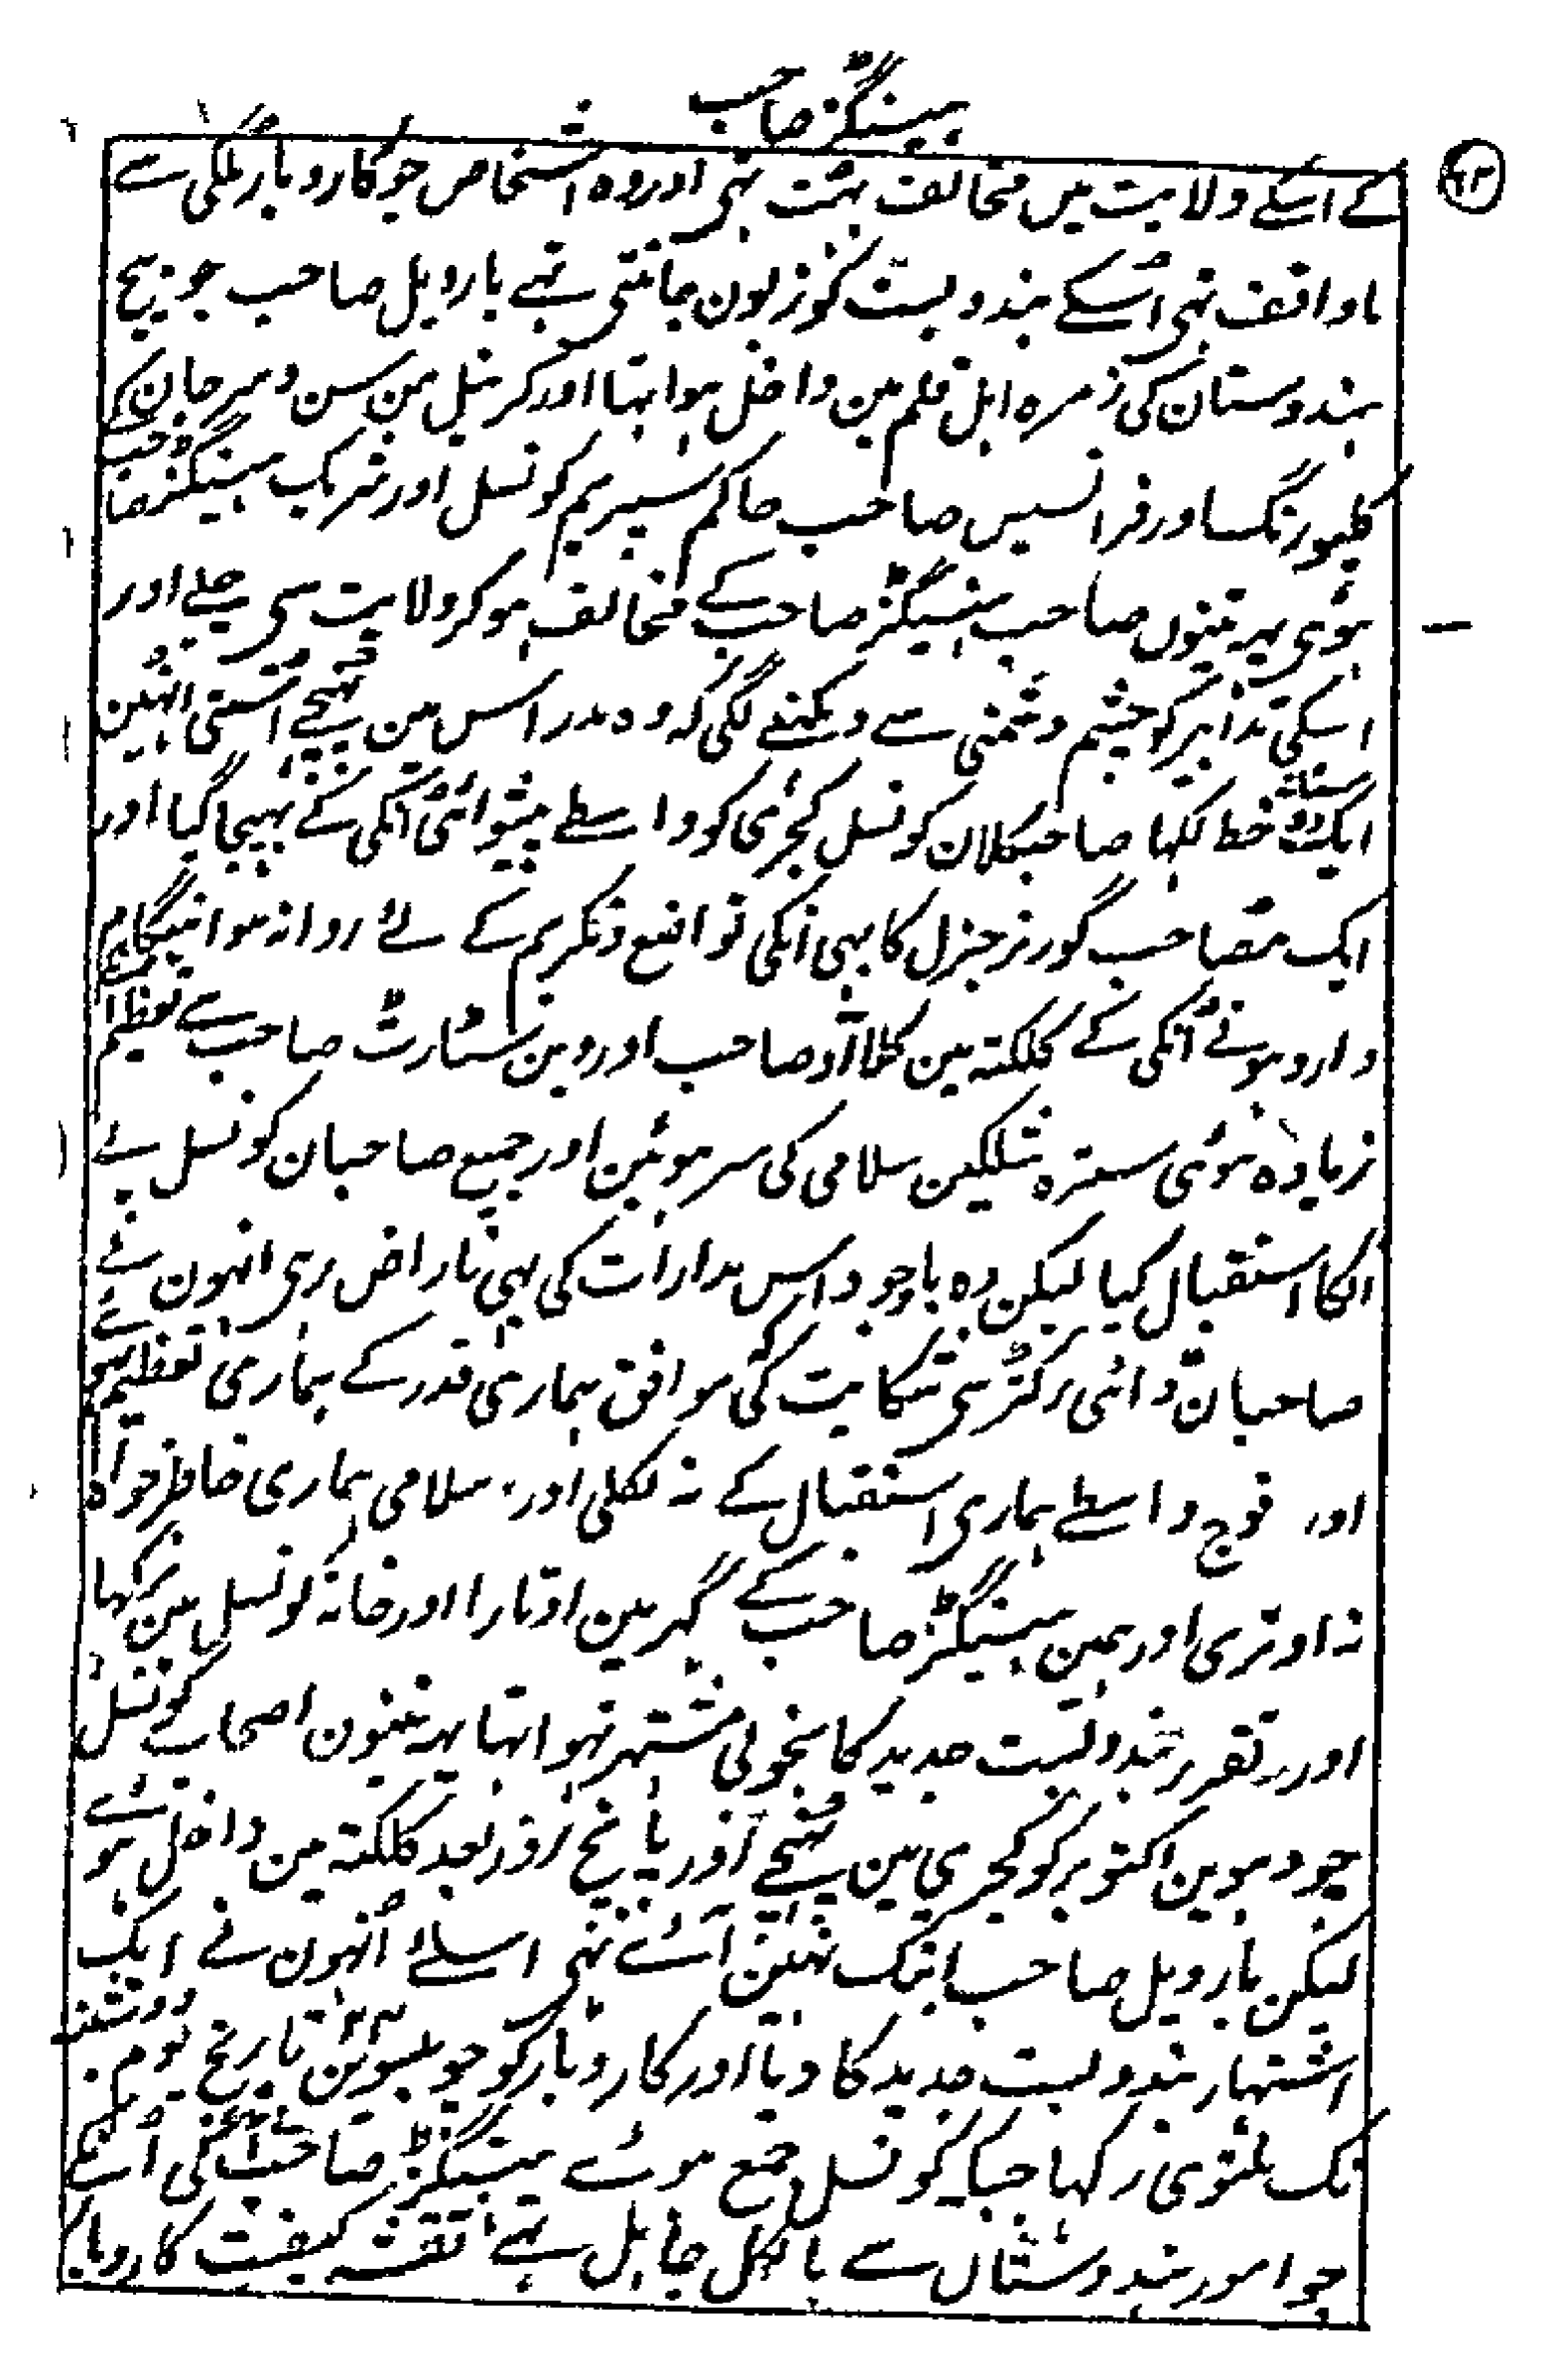 ہیسٹنگز صاحب
۶۲
کے اسکے ولایت میں مخالف بہت تہی اور وہ اشخاص جو کاروبار ملکی سے
ناواقف تہی اُسکے بندوبست کو زبون جانتی تہے بارویل صاحب جو بیچ
ہندوستان کی زمرہ اہل قلم مین داخل ہوا تہا اور کرنیل من سن و سر جان
کلیورنگ اور فرانسیس صاحب حاکم سپریم کونسل اور شریک ہیسٹنگز صاحب
ہوئی یہہ تینوں صاحب ہیسٹنگز صاحب کے مخالف ہو کر ولایت سی چلے اور
اسکی تدابیر کو چشم دشمنی سے دیکہنے لگی کہ وہ مدراس مین پہنچے اُسنی انہین
ایک دوستانہ خط لکہا صاحب کلان کونسل کجری کو واسطے پیشوائی اُنکی کے بہیجا گیا اور
ایک مصاحب گورنر جنرل کا بہی اُنکی تواضع و تکریم کے لئے روانہ ہوا ہنگام
وارد ہونے اُنکی کے کلکتہ مین کلائو صاحب اور وین سٹارٹ صاحب سے تعظیم
زیادہ ہوئی سترہ شلکین سلامی کی سر ہوئین اور جمیع صاحبان کونسل نے
انکا استقبال کیا لیکن وہ باوجود اس مدارات کی بہی ناراض رہی انہون نے
صاحبان ڈائی رکٹر سی شکایت کی کہ موافق ہماری قدر کے ہماری تعظیم
اور فوج واسطے ہماری استقبال کے نہ نکلی اور سلامی ہماری خاطر خواہ
نہ اوتری اور ہمین ہیسٹنگز صاحب کے گہر مین اوتارا اور خانہ کونسل مین نرکہا
اور تقرر بندوبست جدید کا بخوبی مشتہر نہوا تہا یہہ تینون اصحاب کونسل
چودہوین اکتوبر کو کجری مین پہنچے اور پانچ روز بعد کلکتہ مین داخل ہوئے
لیکن بارویل صاحب ابتک نہین آئے تہی اسلئے اُنہون نے ایک
اشتہار بندوبست جدید کا دیا اور کاروبار کو چوبیسوین ۲۴ تاریخ یوم دوشنبہ
تک ملتوی رکہا جب کونسل جمع ہوئے ہیسٹنگز صاحب نی اُنکے
جو امور ہندوستان سے بالکل جاہل تہے نقشہ کیفیت کاروبار